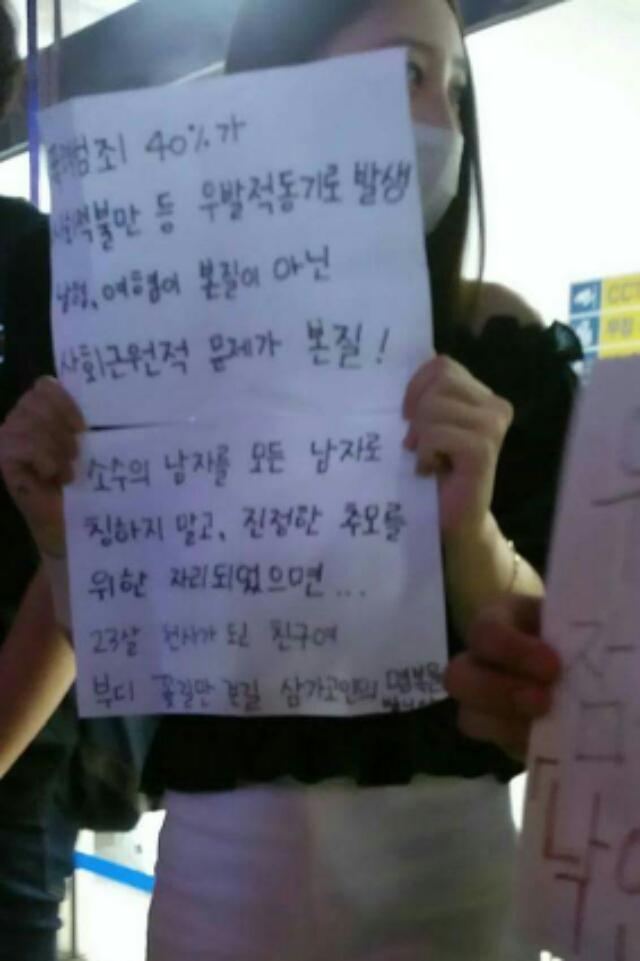 범죄 40%가
불만 등 우발적동기로 발생
남혐, 여혐이 본질이 아닌
사회근원적 문제가 본질!
소수의 남자를 모든 남자로
칭하지 말고, 진정한 추모를
위한 자리되었으면...
23살 천사가 된 친구여
부디 꽃길만 걷길 삼가고인의 명복을
CCT